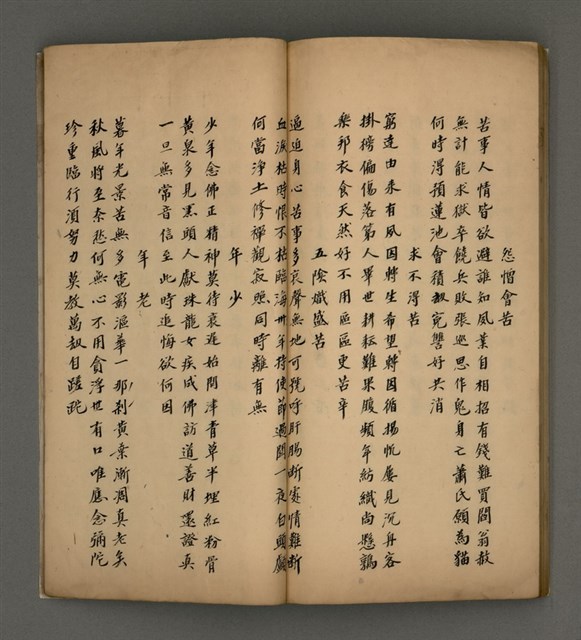 怨憎會苦
苦事人情皆欲避誰知風業自相招有錢難買閻翁赦
無計能求獄卒饒兵敗張巡思作鬼身亡蕭氏願為貓
何時得預蓮池會積劫冤讐好共消
求不得苦
窮達由來有夙因轉生希望轉因循揚帆屢見沉舟客
掛榜偏傷落第人畢世耕耘難果腹頻年紡織尚懸鶉
樂邦衣食天然好不用區區更苦辛
五陰熾盛苦
逼迫身心苦事多哀聲無地可號呼肝腸斷處情難斷
血淚枯時恨不枯臨海卅年持使節過關一夜白頭顱
何當淨土修禪觀寂照同時離有無
年少
少年念佛正精神莫待衰遲始問津青草半埋紅粉骨
黃泉多見黑頭人獻珠龍女疾成佛訪道善財還證真
一旦無常音信至此時追悔欲何因
年老
暮年光景苦無多電影漚華一那剎黃葉漸凋真老矣
秋風將至奈悲何無心不用貪浮世有口唯應念彌陀
珍重臨行須努力莫教萬劫自蹉跎